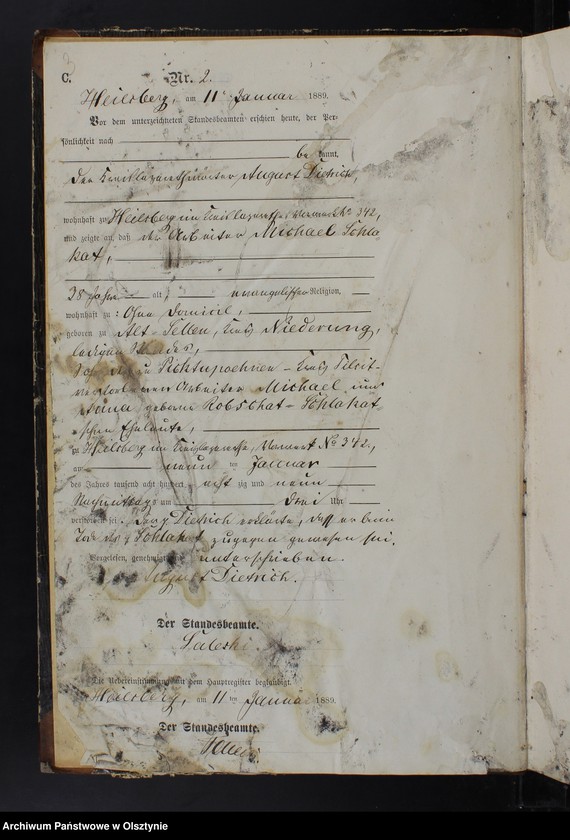 C. Nr. 2.
Heilsberg, am 11 Januar 1889.
Vor dem unterzeichneten Standesbeamten erschien heute, der Per-
sönlichkeit nach
be kannt,
der Kreislazarethwärter August Dietrich,
wohnhaft zu Heilsberg im Kreislazarethe, Vorwerk No 342,
und zeigte an, daß der Arbeiter Michael Schla-
kat,
38 Jahre alt, evangelischer Religion,
wohnhaft zu: Ohne Domicil,
geboren zu Alt-Sellen, Kreis Niederung,
ledigen Standes,
Sohn der zu Kreis Tilsit-
verstorbenen Arbeiter Michael und
Anna geborne Robschat-Schlakat
schen Eheleute,
zu Heilsberg im Kreislazarethe, Vorwerk No 342,
am neun ten Januar
des Jahres tausend acht hundert acht zig und neun
Nachmittags um drei Uhr
verstorben sei. Dietrich erklärte, daß er beim
Tode des Schlakat zugegen gewesen sei.
Vorgelesen, genehmigt und unterschrieben.
August Dietrich.
Der Standesbeamte.
Die Uebereinstimmung mit dem Hauptregister beglaubigt.
Heilsberg, am 11 ten Januar 1889.
Der Standesbeamte.
Archiwum Państwowe w Olsztynie